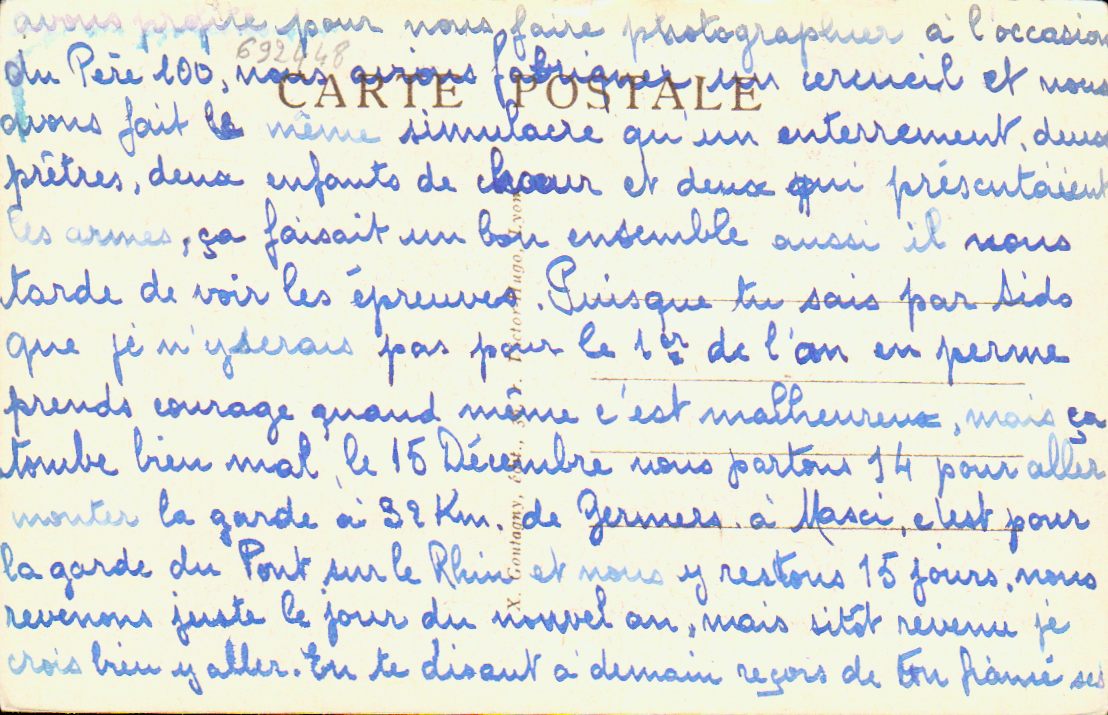 avons profité pour nous faire photographier à l'occasion
692448
du Père 100, nous avions fabriquer un cercueil et nous
CARTE POSTALE
avons fait le même simulacre qu'un enterrement, deux
prêtres, deux enfants de chœur et deux qui présentaient
les armes, ça faisait un bon ensemble aussi il nous
tarde de voir les épreuves. Puisque tu sais par Sido
que je n'y serais pas pour le 1er de l'an en perme
prends courage quand même c'est malheureux, mais ça
tombe bien mal, le 15 Décembre nous partons 14 pour aller
monter la garde à 32 Km. de Germers. à Maxi, c'est pour
la garde du Pont sur le Rhin et nous y restons 15 jours, nous
revenons juste le jour du nouvel an, mais sitôt revenu je
crois bien y aller. En te disant à demain reçois de ton fiancé ses
X. Goutagny, édit., Victor-Hugo, Lyon